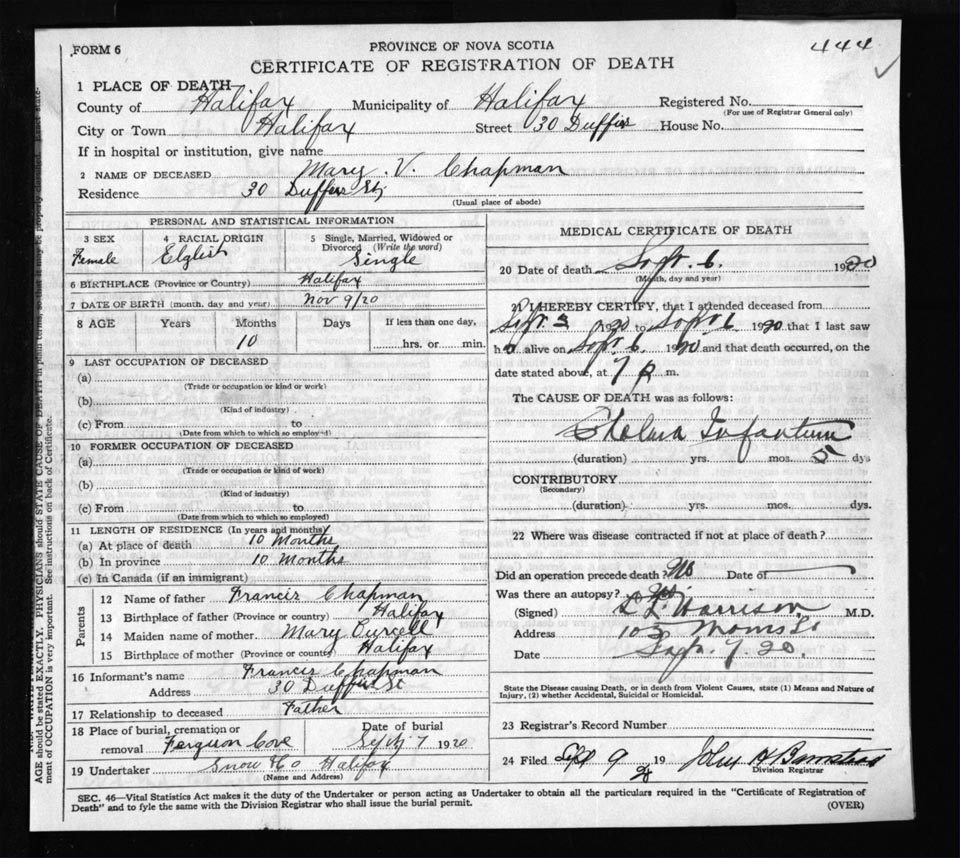 FORM 6
PROVINCE OF NOVA SCOTIA
444
CERTIFICATE OF REGISTRATION OF DEATH
1 PLACE OF DEATH
County of Halifax Municipality of Halifax Registered No.
(For use of Registrar General only)
City or Town Halifax Street 30 Duffus House No.
If in hospital or institution, give name
2 NAME OF DECEASED Mary V. Chapman
Residence 30 Duffus St
(Usual place of abode)
PERSONAL AND STATISTICAL INFORMATION
3 SEX
Female
4 RACIAL ORIGIN
5 Single, Married, Widowed or
Divorced (Write the word)
Single
6 BIRTHPLACE (Province or Country) Halifax
7 DATE OF BIRTH (month, day and year) Nov 9/20
8 AGE Years Months Days If less than one day,
10 hrs. or min.
9 LAST OCCUPATION OF DECEASED
(a)
(Trade or occupation or kind or work)
(b)
(Kind of industry)
(c) From to
(Date from which to which so employed)
10 FORMER OCCUPATION OF DECEASED
(a)
(Trade or occupation or kind of work)
(b)
(Kind of industry)
(c) From to
(Date from which to which so employed)
11 LENGTH OF RESIDENCE (In years and months)
(a) At place of death 10 Months
(b) In province 10 Months
(c) In Canada (if an immigrant)
Parents
12 Name of father Francis Chapman
13 Birthplace of father (Province or country) Halifax
14 Maiden name of mother Mary Purcell
15 Birthplace of mother (Province or country) Halifax
16 Informant's name Francis Chapman
Address 30 Duffus St
17 Relationship to deceased Father
18 Place of burial, cremation or
removal Ferguson Cove
Date of burial
Sept 7 1920
19 Undertaker Snow & Co Halifax
(Name and Address)
MEDICAL CERTIFICATE OF DEATH
20 Date of death Sept. 6. 1920
(Month, day and year)
21 I HEREBY CERTIFY, that I attended deceased from
Sept 1920 to Sept 6 1920 that I last saw
h alive on Sept 6 1920 and that death occurred, on the
date stated above, at 7 p m.
The CAUSE OF DEATH was as follows:
Cholera Infantum
(duration) yrs. mos. 5 dys
CONTRIBUTORY
(Secondary)
(duration) yrs. mos. dys.
22 Where was disease contracted if not at place of death?
Did an operation precede death? No Date of
Was there an autopsy? No
(Signed) Harrison M.D.
Address
Date Sept. 7. 20.
State the Disease causing Death, or in death from Violent Causes, state (1) Means and Nature of
Injury, (2) whether Accidental, Suicidal or Homicidal.
23 Registrar's Record Number
24 Filed Sept 9 19 John H Barnstead
Division Registrar
SEC. 46—Vital Statistics Act makes it the duty of the Undertaker or person acting as Undertaker to obtain all the particulars required in the "Certificate of Registration of
Death" and to fyle the same with the Division Registrar who shall issue the burial permit.
(OVER)
AGE should be stated EXACTLY. PHYSICIANS should STATE CAUSE OF DEATH in
ment of OCCUPATION is very important. See instructions on back of Certificate.